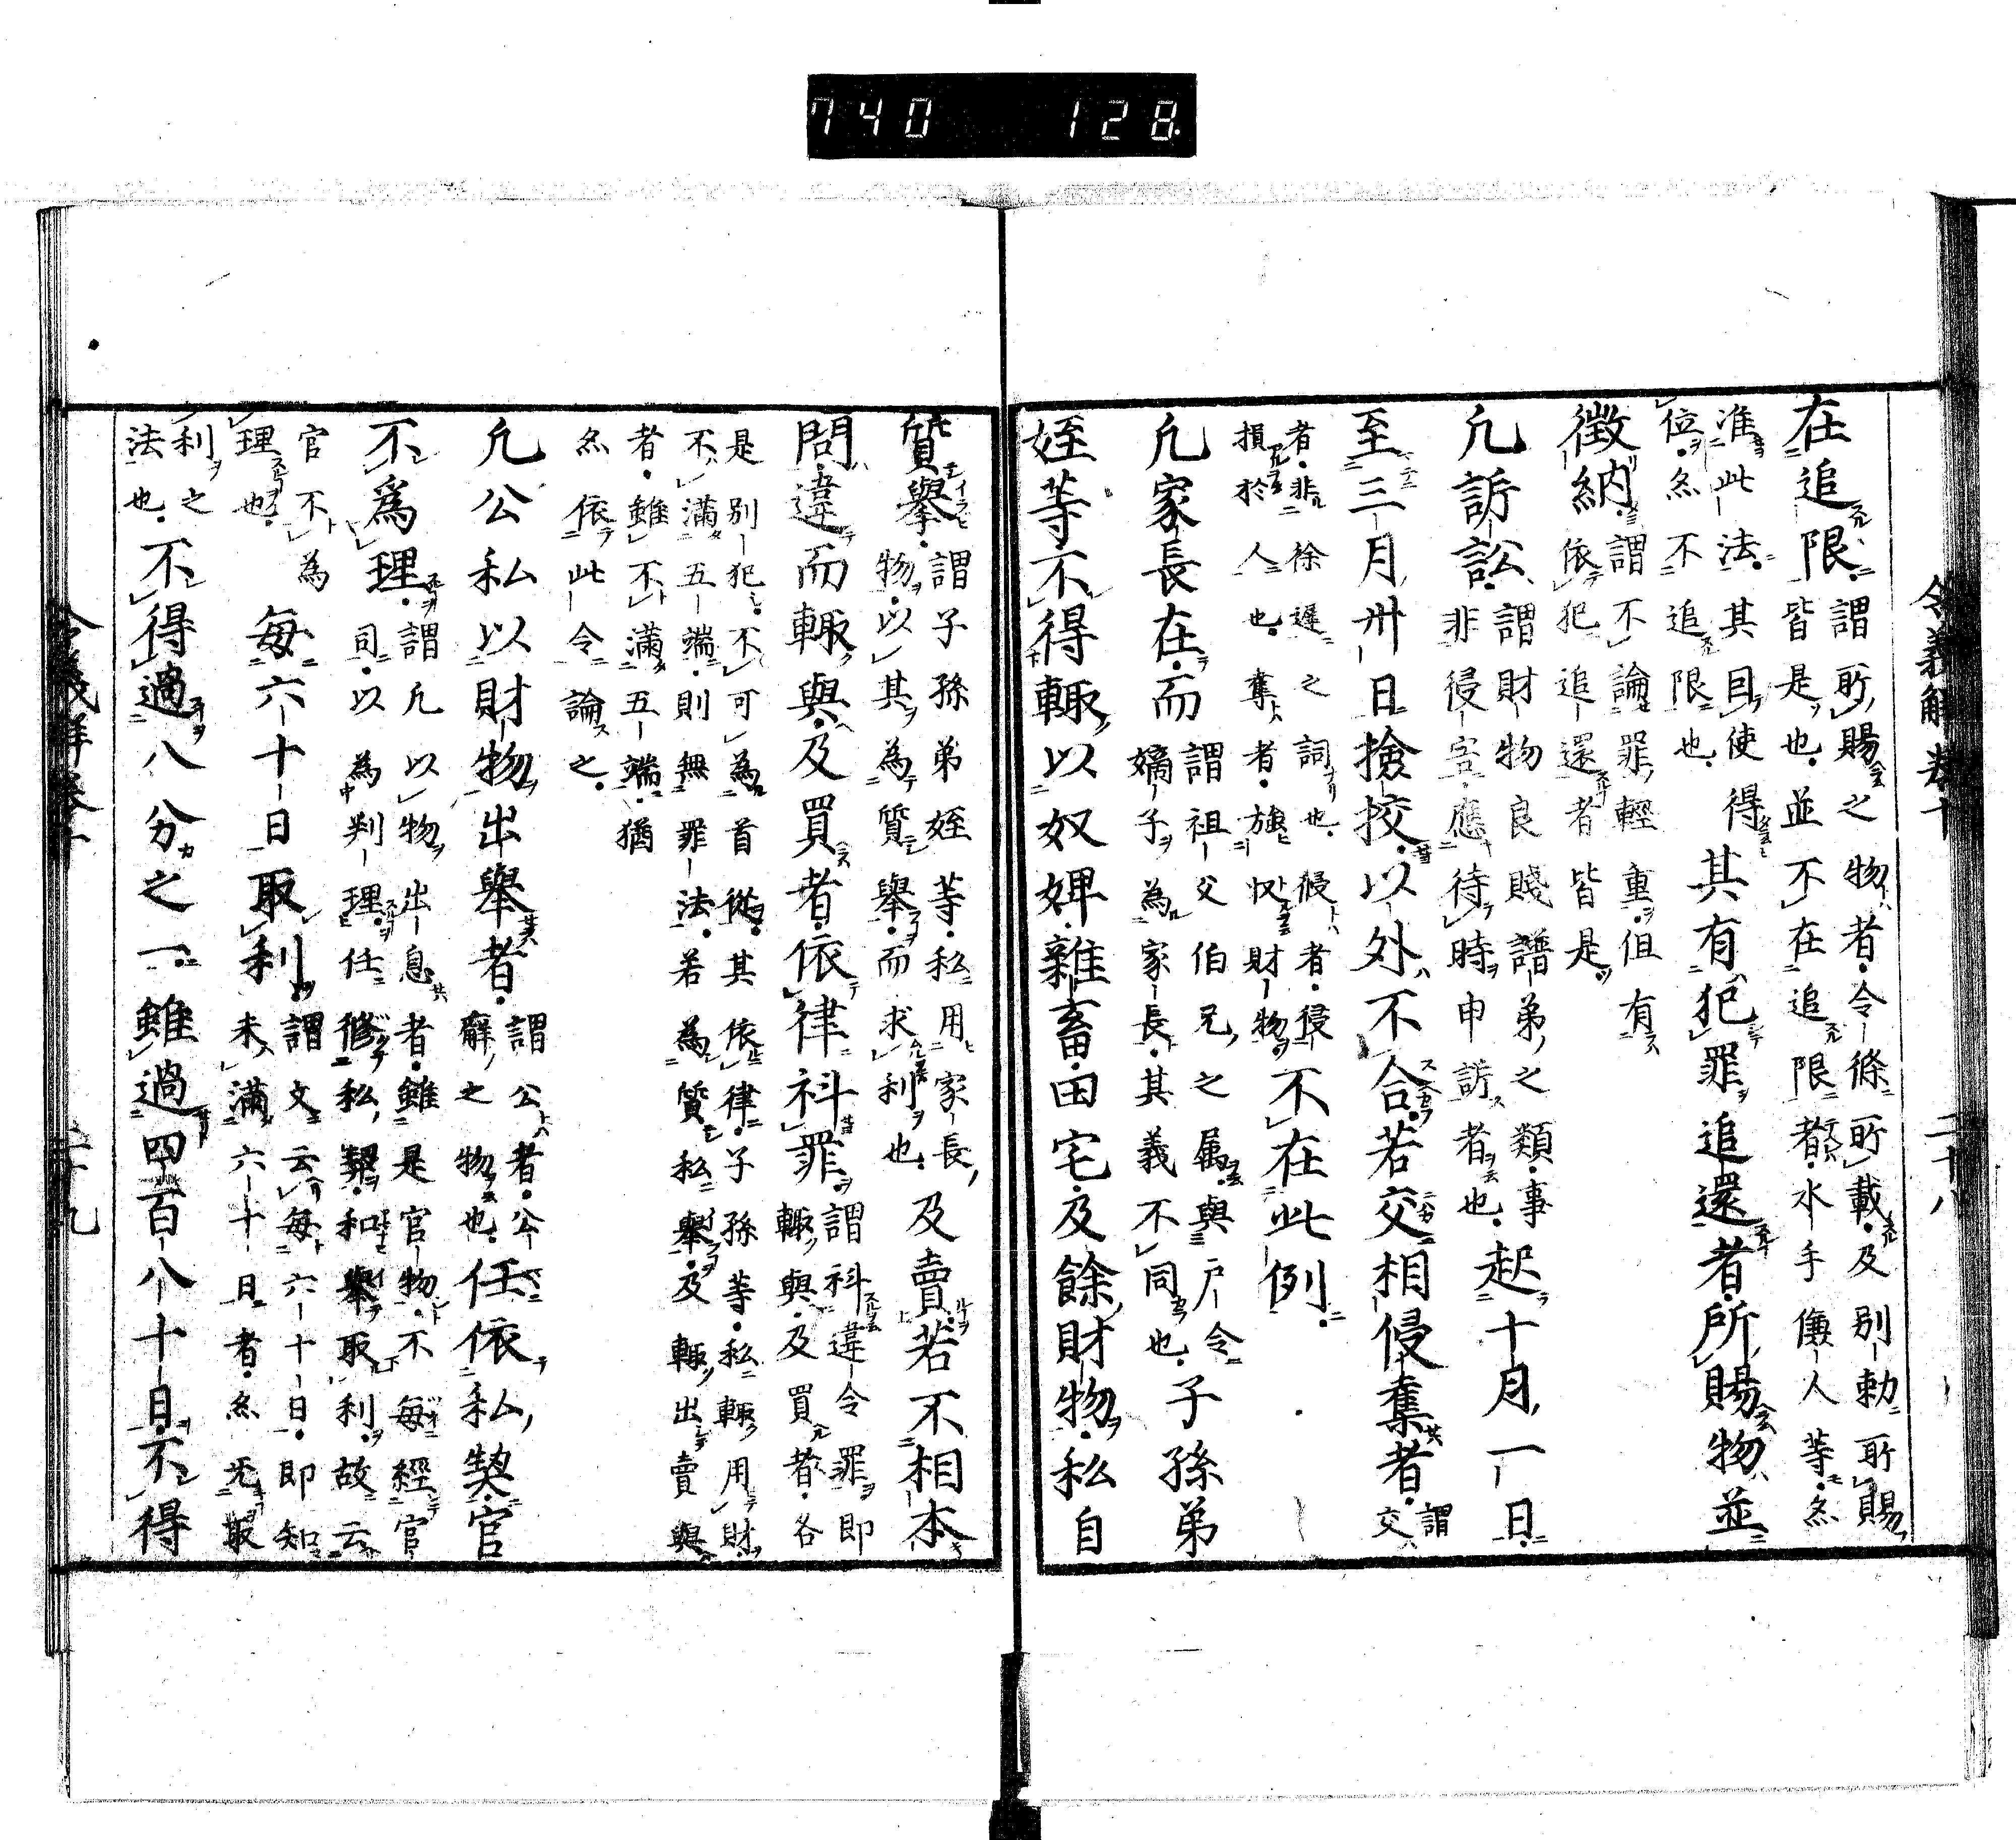 740 128
令義解卷十 二十八
在追限。謂所賜之物者。令條所載。及別勅所賜
皆是也。並不在追限者。水手傔人等。然
准此法。其因使得
位。然不追限也。
其有犯罪追還者。所賜物並
徴納。謂不論罪輕重。但有
依犯追還者皆是。
凢訴訟。謂財物良賤譜弟之類。事
非侵害。應待時申訴者也。
起十月一日。
至三月卅日撿挍。以外不合。若交相侵奪者。謂交
者。非徐遲之詞也。侵者。侵
損於人也。奪者。強收財物。
不在此例。
凢家長在。而謂祖父伯兄之属。與戸令
嫡子為家長。其義不同也。
子孫弟
姪等不得輙以奴婢雜畜田宅及餘財物私自
質擧。謂子孫弟姪等。私用家長
物。以其為質擧。而求利也。
及賣。若不相本
問。違而輙與。及買者。依律科罪。謂科違令罪。即
輙與。及買者。各
是別犯。不可為首從。其依律。子孫等。私輙用財。
不滿五端。則無罪法。若為質私擧。及輙出賣與
者。雖不滿五端。猶
然依此令論之。
凢公私以財物出擧者。謂公者。公
廨之物也。
任依私契。官
不為理。謂凢以物出息者。雖是官物。不每經官
司。以為判理。任修私契。和擧取利。故云
官不為
理也。
每六十日取利。謂文云每六十日。即知
未滿六十日者。然无取
利之
法也。
不得過八分之一。雖過四百八十日。不得
令義解卷十 二十九